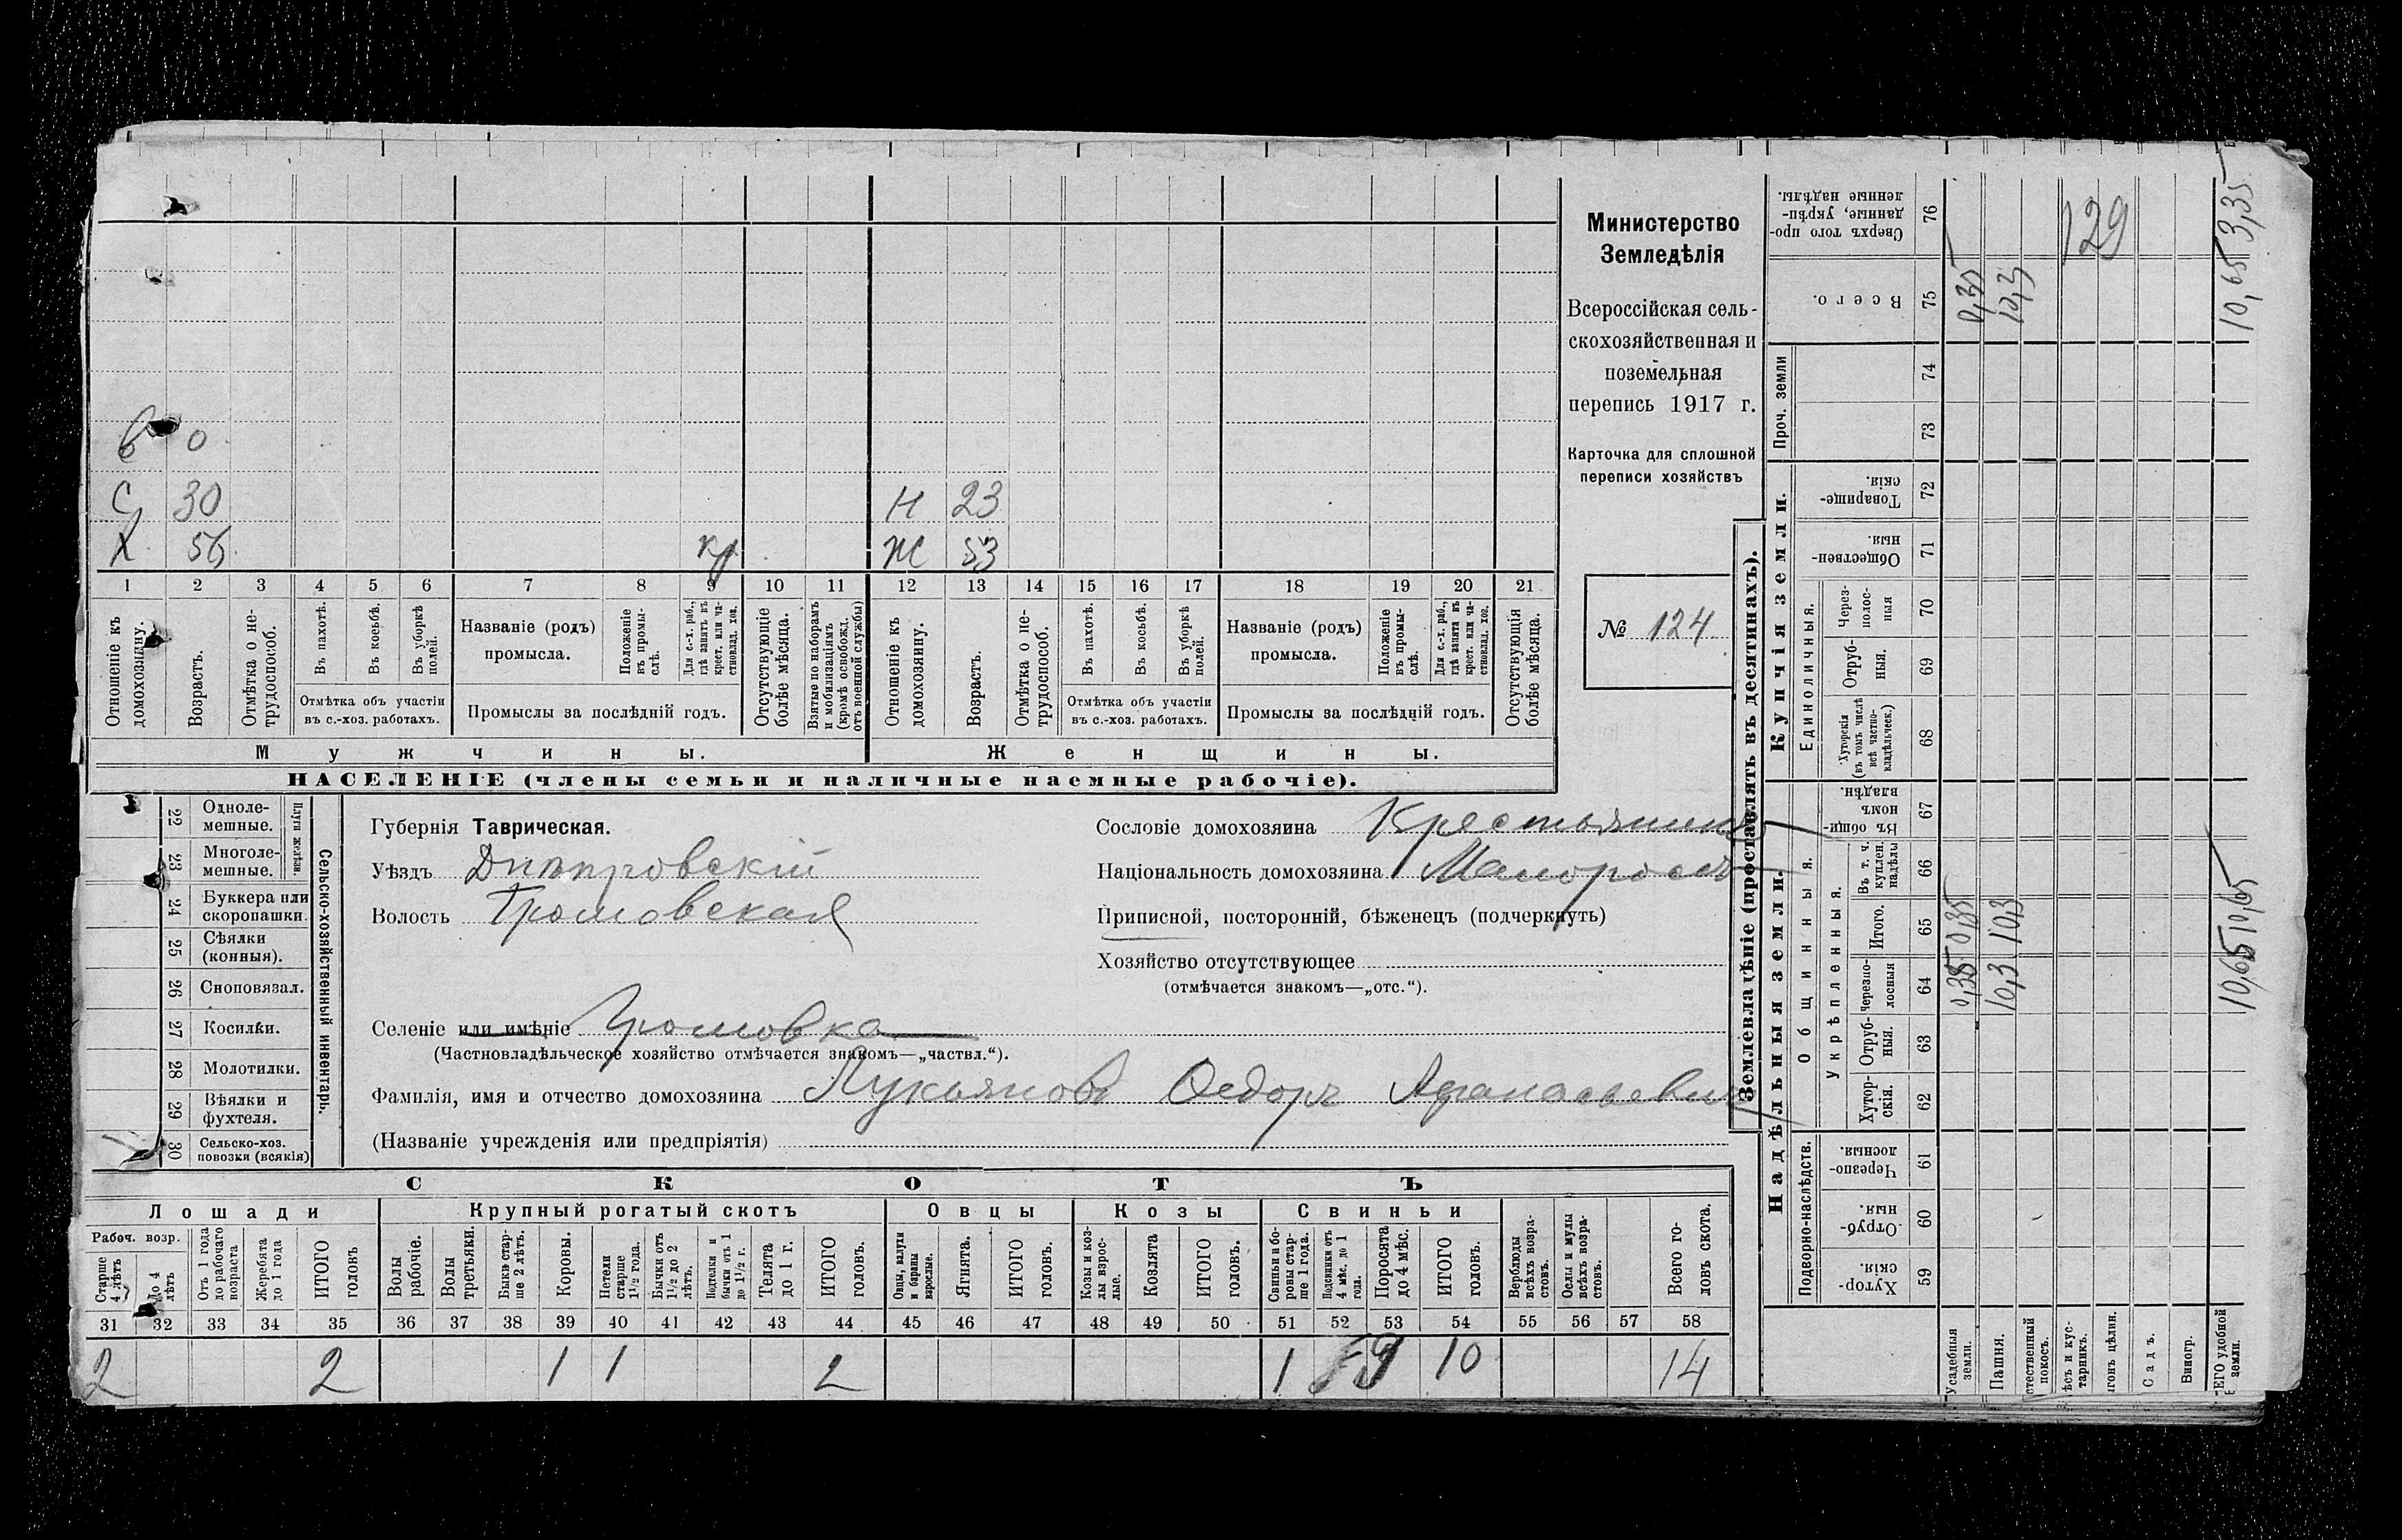 в 0
С 30 Н 23
Х 56 кр Ж 53
1 2 3 4 5 6 7 8 9 10 11 12 13 14 15 16 17 18 19 20 21
Отношеніе къ домохозяину.
Возрастъ.
Отмѣтка о не-
трудоспособ.
Въ пахотѣ.
Въ косьбѣ.
Въ уборкѣ полей.
Отмѣтка объ участіи
въ с.-хоз. работахъ.
Названіе (родъ)
промысла.
Положеніе
въ промы-
слѣ.
Для с.-х. раб.,
гдѣ занятъ въ
крест. или ча-
стновлад. хоз.
Промыслы за послѣдній годъ.
Отсутствующіе
болѣе мѣсяца.
Взятые по наборамъ
и мобилизаціямъ
(кромѣ освобожд.
отъ военной службы)
Отношеніе къ
домохозяину.
Возрастъ.
Отмѣтка о не-
трудоспособ.
Въ пахотѣ.
Въ косьбѣ.
Въ уборкѣ
полей.
Отмѣтка объ участіи
въ с.-хоз. работахъ.
Названіе (родъ)
промысла.
Положеніе
въ промы-
слѣ.
Для с.-х. раб.,
гдѣ занята въ
крест. или ча-
стновлад. хоз.
Промыслы за послѣдній годъ.
Отсутствующія
болѣе мѣсяца.
Мужчины.
Женщины.
НАСЕЛЕНІЕ (члены семьи и наличные наемные рабочіе).
Министерство
Земледѣлія
Всероссійская сель-
скохозяйственная и
поземельная
перепись 1917 г.
Карточка для сплошной
переписи хозяйствъ
№ 124
22 Одноле-
мешные.
23 Многоле-
мешные.
Плуги желѣзн.
24 Буккера или
скоропашки.
25 Сѣялки
(конныя).
26 Сноповязал.
27 Косилки.
28 Молотилки.
29 Вѣялки и
фухтеля.
30 Сельско-хоз.
повозки (всякія)
Сельско-хозяйственный инвентарь.
Губернія Таврическая.
Уѣздъ Днѣпровскій
Волость Громовская
Селеніе или имѣніе Громовка
(Частновладѣльческое хозяйство отмѣчается знакомъ—„частвл.“).
Фамилія, имя и отчество домохозяина Лукьяновъ Ѳедоръ Афанасьевичъ
(Названіе учрежденія или предпріятія)
Сословіе домохозяина Крестьянинъ
Національность домохозяина Малороссъ
Приписной, посторонній, бѣженецъ (подчеркнуть)
Хозяйство отсутствующее
(отмѣчается знакомъ—„отс.“).
СКОТЪ
Лошади
Рабоч. возр.
Старше
4 лѣтъ
До 4
лѣтъ
Отъ 1 года
до рабочаго
возраста
Жеребята
до 1 года
ИТОГО
головъ
Крупный рогатый скотъ
Волы
рабочіе.
Волы
третьяки.
Быки стар-
ше 2 лѣтъ.
Коровы.
Нетели
старше
1½ года.
Бычки отъ
1½ до 2
лѣтъ.
Подтелки и
бычки отъ 1
до 1½ г.
Телята
до 1 г.
ИТОГО
головъ.
Овцы
Овцы, валухи
и бараны
взрослые.
Ягнята.
ИТОГО
головъ.
Козы
Козы и коз-
лы взрос-
лые.
Козлята
ИТОГО
головъ.
Свиньи
Свиньи и бо-
ровы стар-
ше 1 года.
Подсвинки отъ
4 мѣс. до 1
года.
Поросята
до 4 мѣс.
ИТОГО
головъ.
Верблюды
всѣхъ возра-
стовъ.
Ослы и мулы
всѣхъ возра-
стовъ.
Всего го-
ловъ скота.
31 32 33 34 35 36 37 38 39 40 41 42 43 44 45 46 47 48 49 50 51 52 53 54 55 56 57 58
2 2 1 1 2 1 9 10 14
Землевладѣніе (проставлять въ десятинахъ).
Надѣльныя земли.
Купчія земли.
Проч. земли
Подворно-наслѣдств.
Общинныя.
Укрѣпленныя.
Единоличныя.
Хутор-
скія. 59
Отруб-
ныя. 60
Черезпо-
лосныя. 61
Хутор-
скія. 62
Отруб-
ныя. 63
Черезпо-
лосныя 64
Итого. 65
Въ т. ч.
куплен.
надѣлы 66
Въ общин-
номъ
владѣн. 67
Хуторскія
(въ томъ числѣ
всѣ частно-
владѣльческ.) 68
Отруб-
ныя. 69
Через-
полос-
ныя 70
Обществен-
ныя. 71
Товарище-
скія. 72
73
74
Всего. 75
Сверхъ того про-
данные, укрѣп-
ленные надѣлы. 76
Усадебныя
земли. 0,35 0,35 0,35
Пашня. 10,3 10,3 10,3
стественный
покосъ.
ѣсъ и кус-
тарникъ.
129
гонъ цѣлин.
Садъ.
Виногр.
ЕГО удобной
земли. 10,65 10,65 10,65 3,35